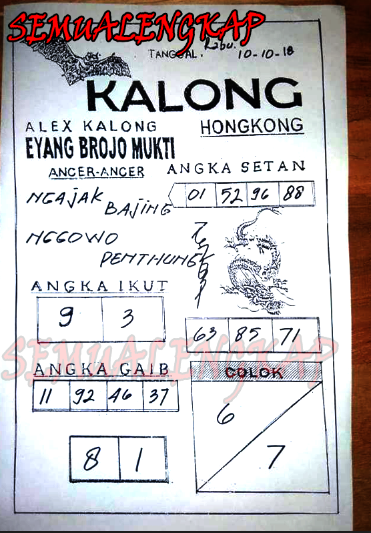 SEMUALENGKAP
TANGGAL. Rabu. 10-10-18
KALONG
ALEX KALONG HONGKONG
EYANG BROJO MUKTI
ANCER-ANCER ANGKA SETAN
NGAJAK BAJING
01 52 96 88
NGGOWO
PENTHUNG
ANGKA IKUT
9 3
63 85 71
SEMUALENGKAP
ANGKA GAIB COLOK
11 92 46 37
6
7
8 1